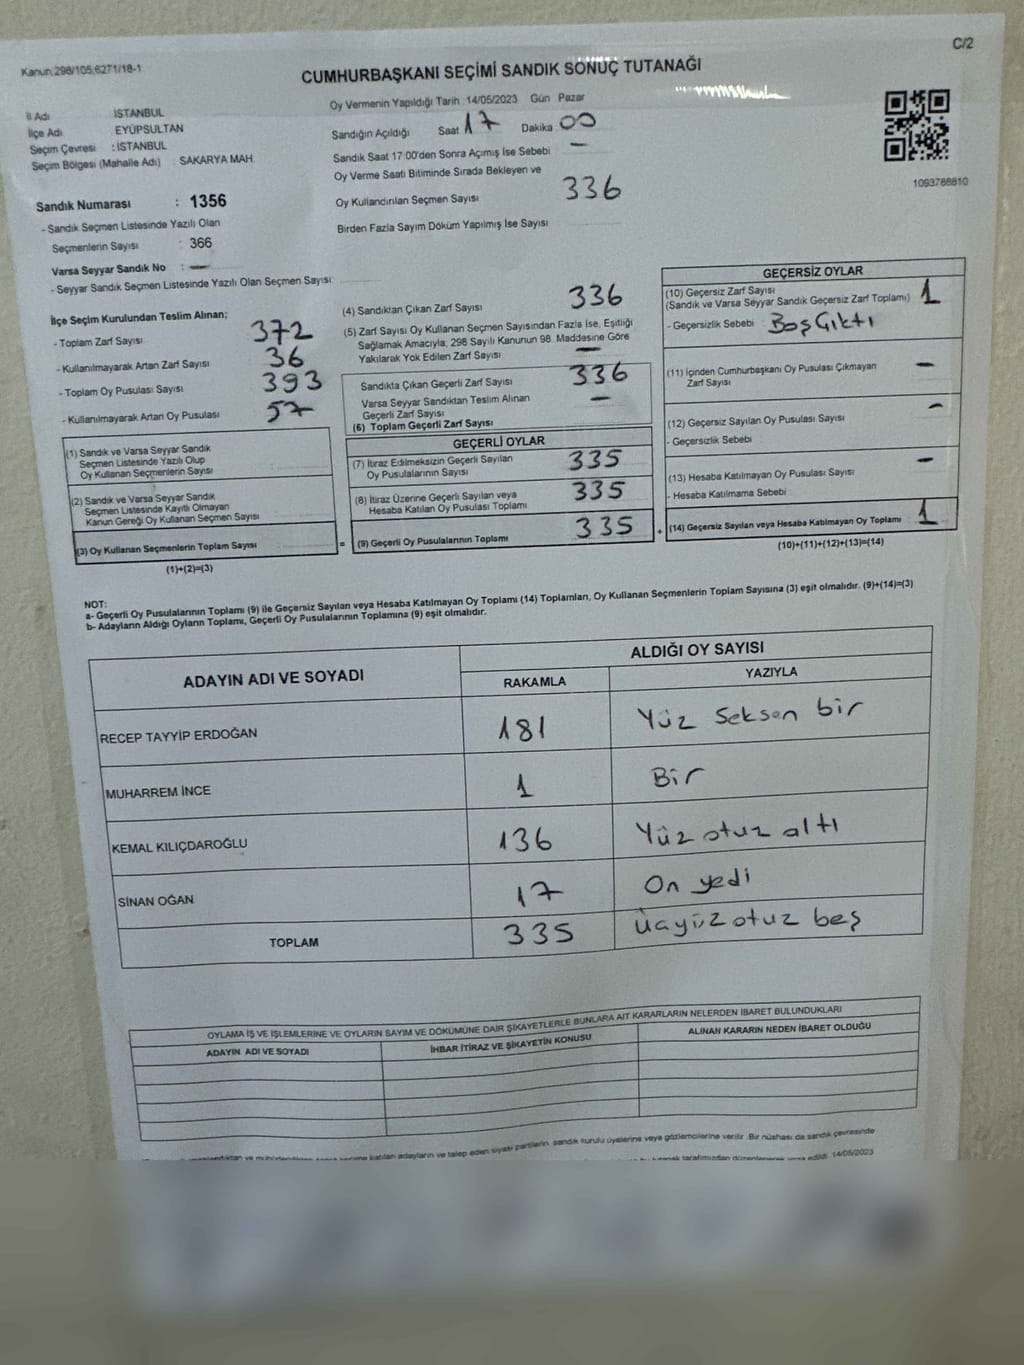 C/2
Kanun:298/105;6271/18-1
CUMHURBAŞKANI SEÇİMİ SANDIK SONUÇ TUTANAĞI
İl Adı İSTANBUL
İlçe Adı EYÜPSULTAN
Seçim Çevresi : İSTANBUL
Seçim Bölgesi (Mahalle Adı) : SAKARYA MAH.
Oy Vermenin Yapıldığı Tarih : 14/05/2023 Gün Pazar
Sandığın Açıldığı Saat 17 Dakika 00
Sandık Saat 17:00'den Sonra Açımış İse Sebebi —
Oy Verme Saati Bitiminde Sırada Bekleyen ve
Oy Kullandırılan Seçmen Sayısı 336
Birden Fazla Sayım Döküm Yapılmış İse Sayısı
1093788810
Sandık Numarası : 1356
- Sandık Seçmen Listesinde Yazılı Olan
Seçmenlerin Sayısı : 366
Varsa Seyyar Sandık No : —
- Seyyar Sandık Seçmen Listesinde Yazılı Olan Seçmen Sayısı:
İlçe Seçim Kurulundan Teslim Alınan;
- Toplam Zarf Sayısı 372
- Kullanılmayarak Artan Zarf Sayısı 36
- Toplam Oy Pusulası Sayısı 393
- Kullanılmayarak Artan Oy Pusulası 57
(1) Sandık ve Varsa Seyyar Sandık
Seçmen Listesinde Yazılı Olup
Oy Kullanan Seçmenlerin Sayısı
(2) Sandık ve Varsa Seyyar Sandık
Seçmen Listesinde Kayıtlı Olmayan
Kanun Gereği Oy Kullanan Seçmen Sayısı
(3) Oy Kullanan Seçmenlerin Toplam Sayısı
(1)+(2)=(3)
(4) Sandıktan Çıkan Zarf Sayısı 336
(5) Zarf Sayısı Oy Kullanan Seçmen Sayısından Fazla İse, Eşitliği
Sağlamak Amacıyla; 298 Sayılı Kanunun 98. Maddesine Göre
Yakılarak Yok Edilen Zarf Sayısı —
Sandıkta Çıkan Geçerli Zarf Sayısı 336
Varsa Seyyar Sandıktan Teslim Alınan
Geçerli Zarf Sayısı —
(6) Toplam Geçerli Zarf Sayısı
GEÇERLİ OYLAR
(7) İtiraz Edilmeksizin Geçerli Sayılan
Oy Pusulasının Sayısı 335
(8) İtiraz Üzerine Geçerli Sayılan veya
Hesaba Katılan Oy Pusulası Toplamı 335
= (9) Geçerli Oy Pusulalarının Toplamı 335 +
GEÇERSİZ OYLAR
(10) Geçersiz Zarf Sayısı
(Sandık ve Varsa Seyyar Sandık Geçersiz Zarf Toplamı) 1
- Geçersizlik Sebebi : Boş Çıktı
(11) İçinden Cumhurbaşkanı Oy Pusulası Çıkmayan
Zarf Sayısı —
(12) Geçersiz Sayılan Oy Pusulası Sayısı —
- Geçersizlik Sebebi
(13) Hesaba Katılmayan Oy Pusulası Sayısı —
- Hesaba Katılmama Sebebi
(14) Geçersiz Sayılan veya Hesaba Katılmayan Oy Toplamı 1
(10)+(11)+(12)+(13)=(14)
NOT:
a- Geçerli Oy Pusulalarının Toplamı (9) ile Geçersiz Sayılan veya Hesaba Katılmayan Oy Toplamı (14) Toplamları, Oy Kullanan Seçmenlerin Toplam Sayısına (3) eşit olmalıdır. (9)+(14)=(3)
b- Adayların Aldığı Oyların Toplamı, Geçerli Oy Pusulalarının Toplamına (9) eşit olmalıdır.
ADAYIN ADI VE SOYADI ALDIĞI OY SAYISI
RAKAMLA YAZIYLA
RECEP TAYYİP ERDOĞAN 181 Yüz Seksen bir
MUHARREM İNCE 1 Bir
KEMAL KILIÇDAROĞLU 136 Yüz otuz altı
SİNAN OĞAN 17 On yedi
TOPLAM 335 üçyüz otuz beş
OYLAMA İŞ VE İŞLEMLERİNE VE OYLARIN SAYIM VE DÖKÜMÜNE DAİR ŞİKAYETLERLE BUNLARA AİT KARARLARIN NELERDEN İBARET BULUNDUKLARI
ADAYIN ADI VE SOYADI İHBAR İTİRAZ VE ŞİKAYETİN KONUSU ALINAN KARARIN NEDEN İBARET OLDUĞU
katılan adayların ve talep eden siyasi partilerin sandık kurulu üyelerine veya gözlemcilerine verilir. Bir nüshası da sandık çevresinde
14/05/2023